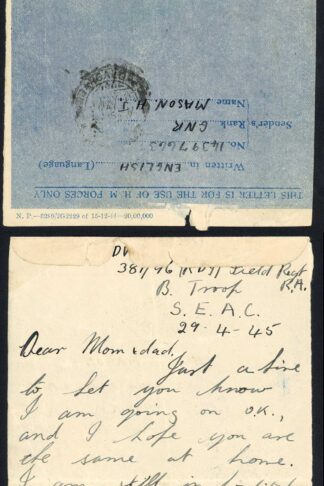 THIS LETTER IS FOR THE USE OF H. M. FORCES ONLY
Written in ENGLISH (Language)
No. 14397663
Sender's Rank GNR
Name MASON. H
N. P.—8280/JG2229 of 15-12-44—20,00,000
Field Regt
B. Troop R.A.
S. E. A. C.
29-4-45
Dear Mom & dad,
Just a line
to let you know
I am going on O.K.,
and I hope you are
the same at home.
I am still in